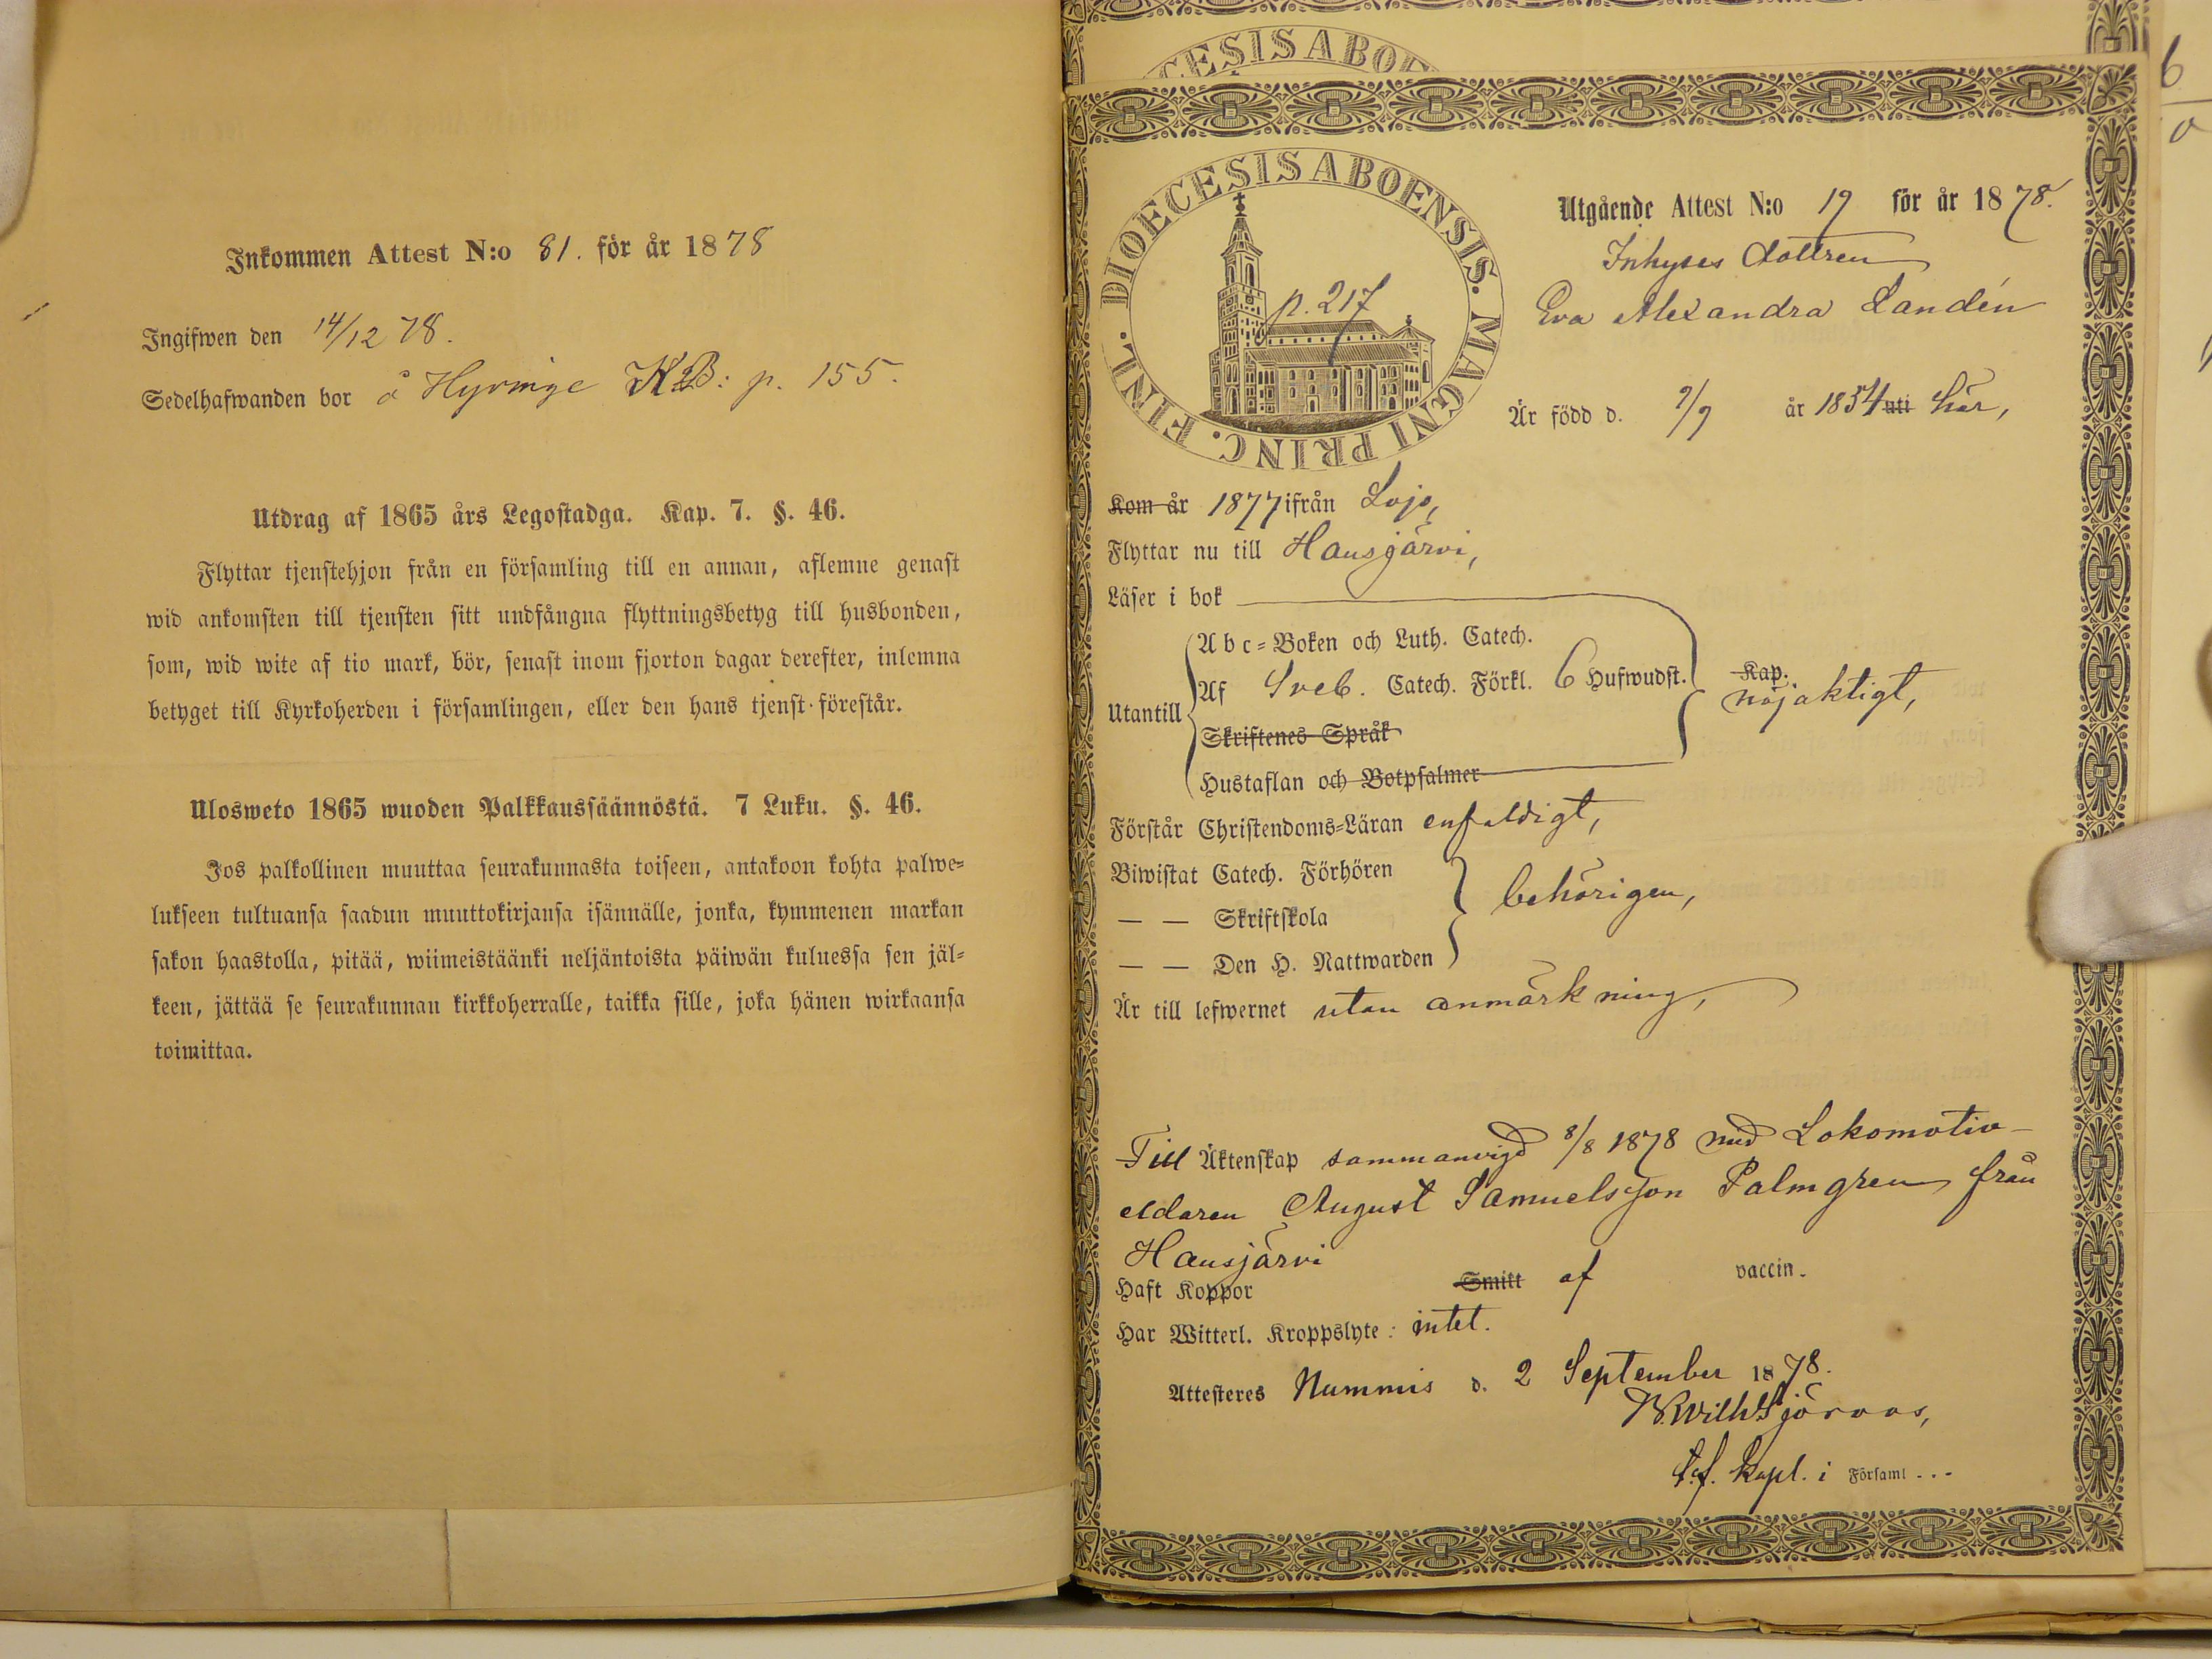 Inkommen Attest N:o 81. för år 1878
Ingifwen den 14/12 78.
Sedelhafwanden bor å Hyvinge KB: p. 155.
Utdrag af 1865 års Legostadga. Kap. 7. §. 46.
Flyttar tjenstehjon från en församling till en annan, aflemne genast
wid ankomsten till tjensten sitt undfångna flyttningsbetyg till husbonden,
som, wid wite af tio mark, bör, senast inom fjorton dagar derefter, inlemna
betyget till Kyrkoherden i församlingen, eller den hans tjenst förestår.
Ulosweto 1865 wuoden Palkkaussäännöstä. 7 Luku. §. 46.
Jos palkollinen muuttaa seurakunnasta toiseen, antakoon kohta palwe-
lukseen tultuansa saadun muuttokirjansa isännälle, jonka, kymmenen markan
sakon haastolla, pitää, wiimeistäänki neljäntoista päiwän kuluessa sen jäl-
keen, jättää se seurakunnan kirkkoherralle, taikka sille, joka hänen wirkaansa
toimittaa.
ESIS ABO
DIOECESIS ABOENSIS. MAGNI PRINC. FINL.
p. 217
Utgående Attest N:o 19 för år 1878.
Inhyses dottren
Eva Alexandra Landén
Är född d. 9/9 år 1854 uti här,
Kom år 1877 ifrån Lojo,
Flyttar nu till Hausjärvi,
Läser i bok
Utantill
A b c-Boken och Luth. Catech.
Af Sveb. Catech. Förkl. 6 Hufwudst. Kap.
nöjaktigt,
Skriftenes Språk
Hustaflan och Botpsalmer
Förstår Christendoms-Läran enfaldigt,
Biwistat Catech. Förhören
— — Skriftskola behörigen,
— — Den H. Nattwarden
Är till lefwernet utan anmärkning,
Till Äktenskap sammanvigd 8/8 1878 med Lokomotiv-
eldaren August Samuelsson Palmgren från
Hausjärvi
Haft Koppor Smitt af vaccin.
Har Witterl. Kroppslyte: intet.
Attesteres Nummis d. 2 September 1878.
Sjöroos,
t.f. Kapl. i Församl...